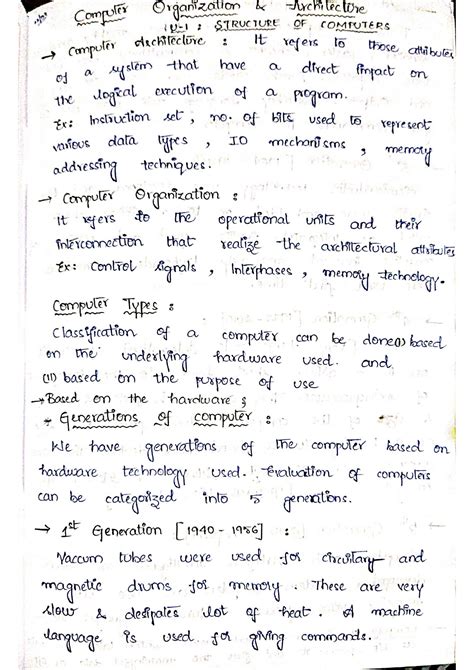 Computer Organization & Architecture
U-1 : STRUCTURE OF COMPUTERS
→ Computer Architecture : It refers to those attributes
of a system that have a direct impact on
the logical execution of a program.
Ex: Instruction set, no. of bits used to represent
various data types, IO mechanisms, memory
addressing techniques.
→ Computer Organization :
It refers to the operational units and their
interconnection that realize the architectural attributes
Ex: Control signals, Interphases, memory technology.
Computer Types :
Classification of a computer can be done(i) based
on the underlying hardware used. and
(ii) based on the purpose of use
→ Based on the hardware :
→ Generations of computer :
We have generations of the computer based on
hardware technology used. Evaluation of computers
can be categorized into 5 generations.
→ 1st Generation [1940 - 1956] :
Vaccum tubes were used for circuitary and
magnetic drums for memory. These are very
slow & desipates lot of heat. A machine
language is used for giving commands.